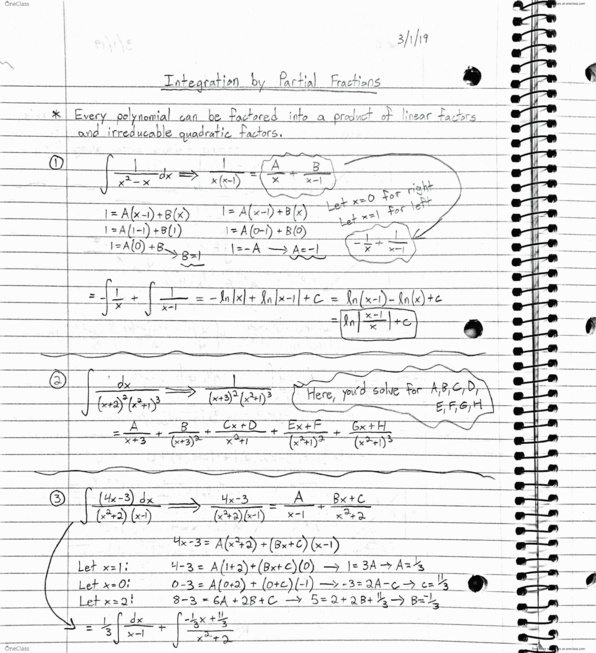 OneClass
3/1/19
Integration by Partial Fractions
* Every polynomial can be factored into a product of linear factors
and irreducable quadratic factors.
① ∫ 1/(x²-x) dx ⟹ 1/(x(x-1)) = A/x + B/(x-1)
Let x=0 for right
Let x=1 for left
1 = A(x-1)+B(x) 1 = A(x-1)+B(x)
1 = A(1-1)+B(1) 1 = A(0-1)+B(0)
1 = A(0)+B → B=1 1 = -A → A=-1
-1/x + 1/(x-1)
= -∫ 1/x + ∫ 1/(x-1) = -ln|x| + ln|x-1| + C = ln(x-1) - ln(x) + c
= ln|(x-1)/x| + c
② ∫ dx/((x+2)²(x²+1)³) ⟹ 1/((x+3)²(x²+1)³)
Here, you'd solve for A,B,C,D,
E,F,G,H
= A/(x+3) + B/(x+3)² + (Cx+D)/(x²+1) + (Ex+F)/(x²+1)² + (Gx+H)/(x²+1)³
③ ∫ (4x-3) dx/((x²+2)(x-1)) ⟹ (4x-3)/((x²+2)(x-1)) = A/(x-1) + (Bx+C)/(x²+2)
4x-3 = A(x²+2) + (Bx+C)(x-1)
Let x=1: 4-3 = A(1+2)+(Bx+C)(0) → 1=3A → A=1/3
Let x=0: 0-3 = A(0+2) + (0+C)(-1) → -3=2A-C → C=11/3
Let x=2: 8-3 = 6A + 2B + C → 5=2+2B+11/3 → B=-1/3
= 1/3 ∫ dx/(x-1) + ∫ (-1/3x + 11/3)/(x²+2)
OneClass